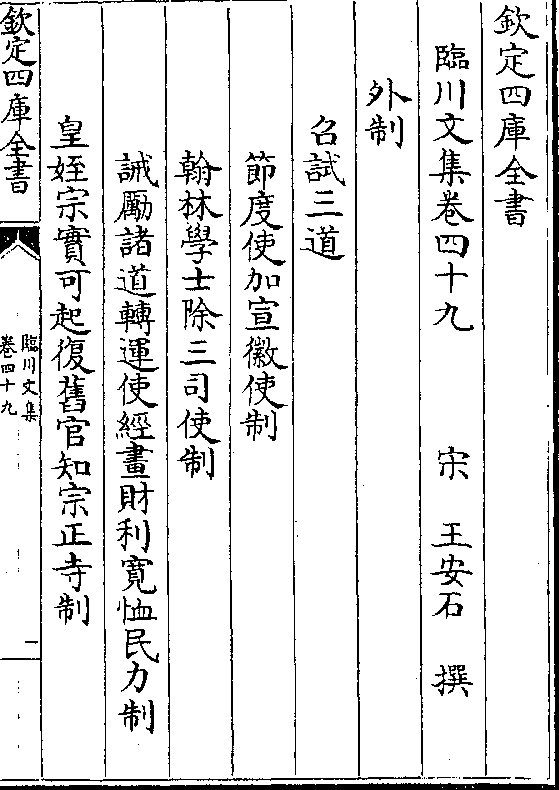 欽定四庫全書
臨川文集卷四十九　宋　王安石　撰
外制
召試三道
節度使加宣徽使制
翰林學士除三司使制
誡勵諸道轉運使經畫財利寬恤民力制
皇姪宗實可起復舊官知宗正寺制
欽定四庫全書
臨川文集
卷四十九
一